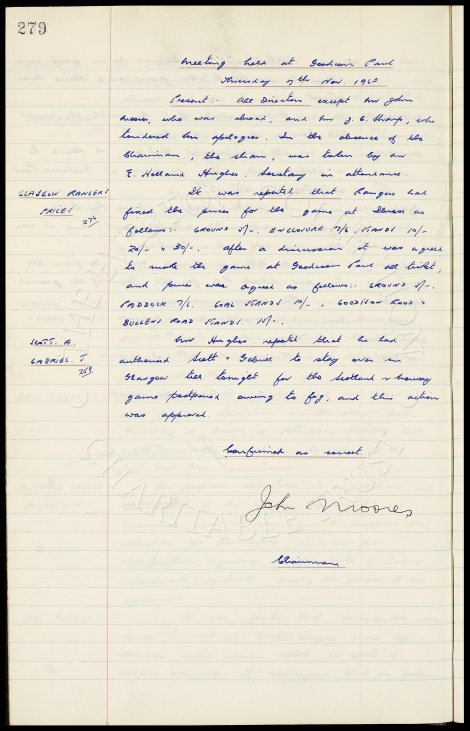 279
Meeting held at Goodison Park
Thursday 7th Nov. 1963
Present:- All Directors except Mr John
Moores, who was abroad, and Mr J. C. Sharp, who
tendered his apologies. In the absence of the
Chairman, the chair, was taken by Mr
E. Holland Hughes. Secretary in attendance.
GLASGOW RANGERS
PRICES
274
It was reported that Rangers had
fixed the prices for the game at Ibrox as
follows:- GROUND 5/-. ENCLOSURE 7/6, STANDS 10/-
20/- & 30/-. After a discussion it was agreed
to make the game at Goodison Park all ticket,
and prices were agreed as follows:- GROUND 5/-.
PADDOCK 7/6. GOAL STANDS 10/-. GOODISON ROAD &
BULLENS ROAD STANDS. 15/-.
SCOTT. A.
GABRIEL. J
259
Mr Hughes reported that he had
authorised Scott & Gabriel to stay over in
Glasgow till tonight for the Scotland v Norway
game postponed owing to fog. and this action
was approved.
Confirmed as correct.
John Moores
Chairman
CHARITABLE TRUST